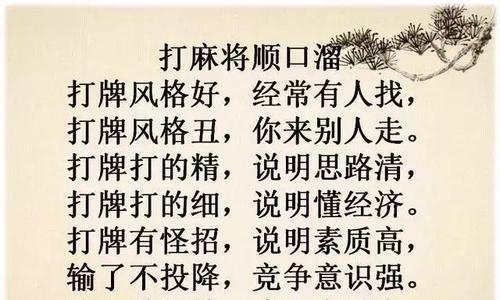 打麻将顺口溜
打牌风格好，经常有人找，
打牌风格丑，你来别人走。
打牌打的精，说明思路清，
打牌打的细，说明懂经济。
打牌有怪招，说明素质高，
输了不投降，竞争意识强。